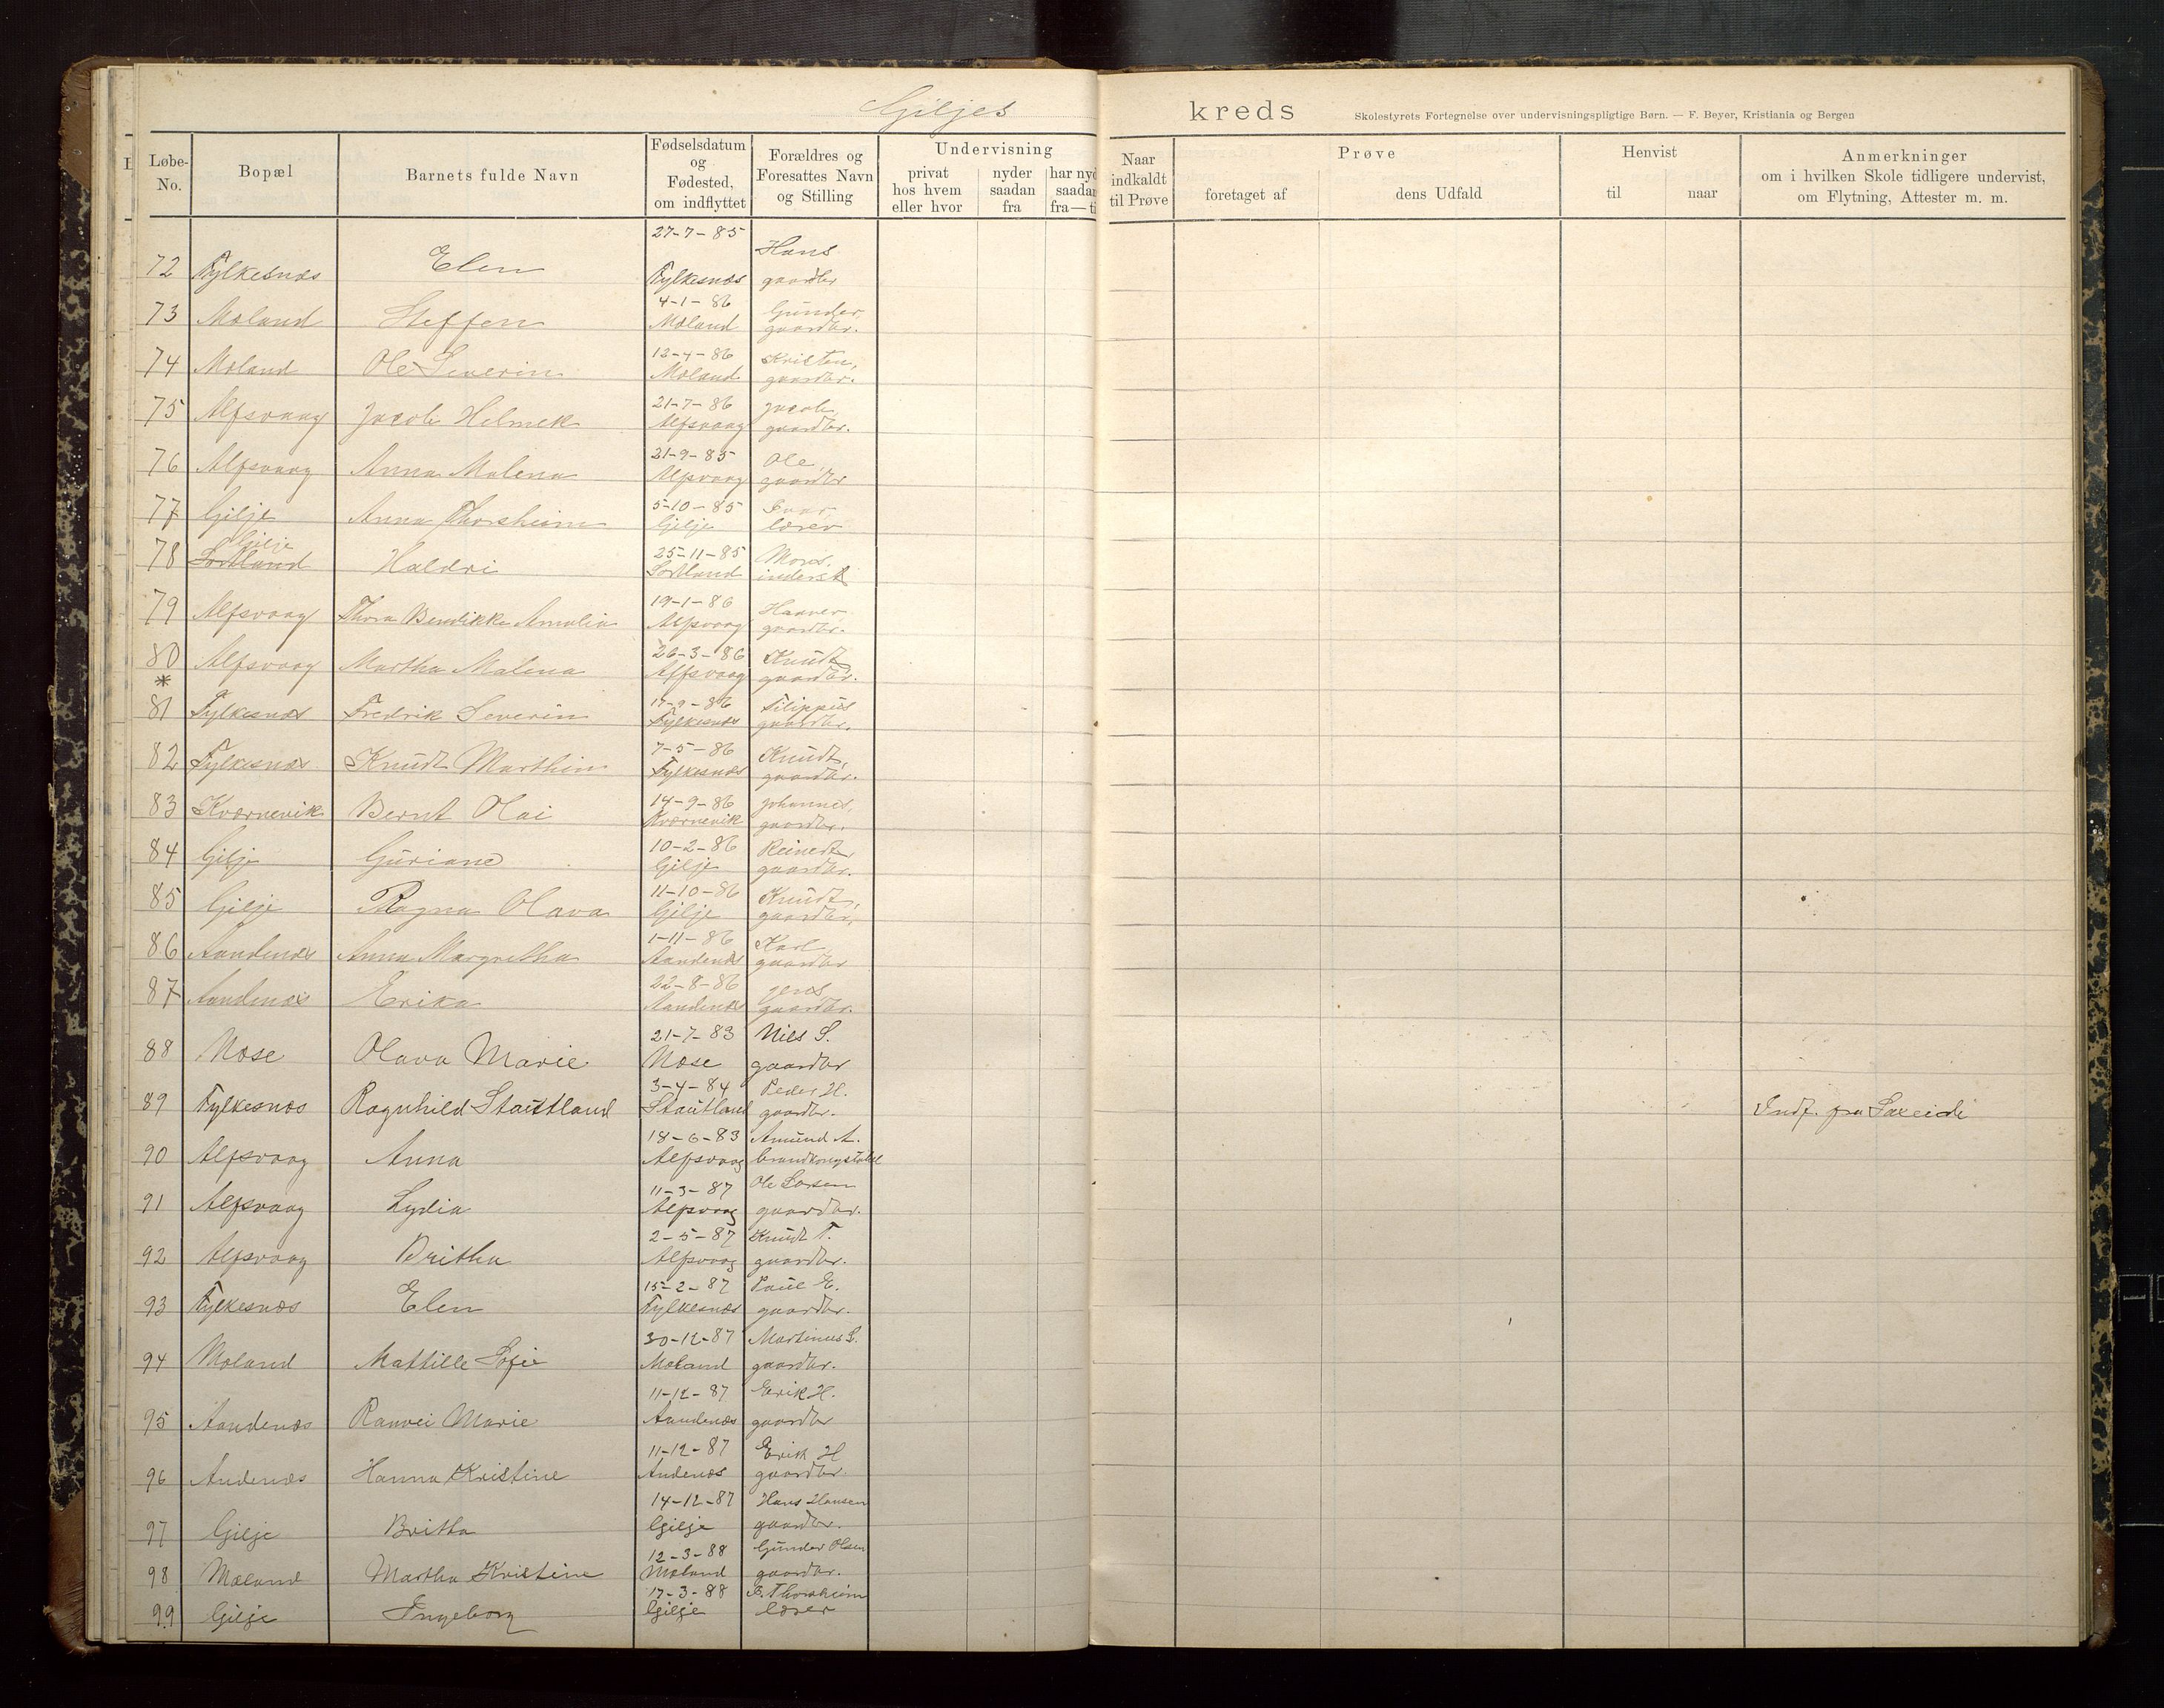 Giljes kreds
Skolestyrets Fortegnelse over undervisningspligtige Børn. — F. Beyer, Kristiania og Bergen
Løbe-No. Bopæl Barnets fulde Navn Fødselsdatum og Fødested, om indflyttet Forældres og Foresattes Navn og Stilling Undervisning privat hos hvem eller hvor nyder saadan fra har nyd saadan fra—ti Naar indkaldt til Prøve Prøve foretaget af dens Udfald Henvist til naar Anmerkninger om i hvilken Skole tidligere undervist, om Flytning, Attester m. m.
27-7-85 Hans
72 Fylkesnæs Elen Fylkesnæs gaardbr
4-1-86 Gunder,
73 Moland Steffen Moland gaardbr.
12-4-86 Kristen,
74 Moland Ole Severin Moland gaardbr.
21-7-86 Jacob,
75 Alfsvaag Jacob Helmek Alfsvaag gaardbr.
21-9-85 Ole,
76 Alfsvaag Anna Malena Alfsvaag gaardbr
5-10-85 Ivar,
77 Gilje Anna Thorsheim Gilje lærer
Gilje 25-11-85 Mons,
78 Sortland Haldri Sortland inderst
19-1-86 Haaver,
79 Alfsvaag Thora Bendikke Amalia Alfsvaag gaardbr.
26-3-86 Knudt
80 Alfsvaag Martha Malena Alfsvaag gaardbr.
*
17-9-86 Filippus
81 Fylkesnæs Fredrik Severin Fylkesnæs gaardbr.
7-5-86 Knudt,
82 Fylkesnæs Knudt Marthin Fylkesnæs gaardbr.
14-9-86 Johannes,
83 Kværnevik Bernt Olai Kværnevik gaardbr.
10-2-86 Reinert,
84 Gilje Guriane Gilje gaardbr.
11-10-86 Knudt,
85 Gilje Ragna Olava Gilje gaardbr.
1-11-86 Karl,
86 Aandenæs Anna Margretha Aandenæs gaardbr
22-8-86 Jens,
87 Aandenæs Erika Aandenæs gaardbr.
21-7-83 Nils S.
88 Nose Olava Marie Nose gaardbr
3-4-84 Peder H.
89 Fylkesnæs Ragnhild Stautland Stautland gaardbr. Indf. fra Sæeide
18-6-83 Amund A.
90 Alfsvaag Anna Alfsvaag brandkonstabel
11-3-87 Ole Larsen
91 Alfsvaag Lydia Alfsvaag gaardbr.
2-5-87 Knudt T.
92 Alfsvaag Britha Alfsvaag gaardbr.
15-2-87 Paul E.
93 Fylkesnæs Elen Fylkesnæs gaardbr.
30-12-87 Martinus S.
94 Moland Mattille Sofie Moland gaardbr.
11-12-87 Erik H.
95 Aandenæs Ranvei Marie Aandenæs gaardbr
11-12-87 Erik H
96 Andenæs Hanna Kristine Andenæs gaardbr.
14-12-87 Hans Hansen
97 Gilje Britha Gilje gaardbr.
12-3-88 Gunder Olsen
98 Moland Martha Kristine Moland gaardbr.
17-3-88 Thorsheim
99 Gilje Ingeborg Gilje lærer